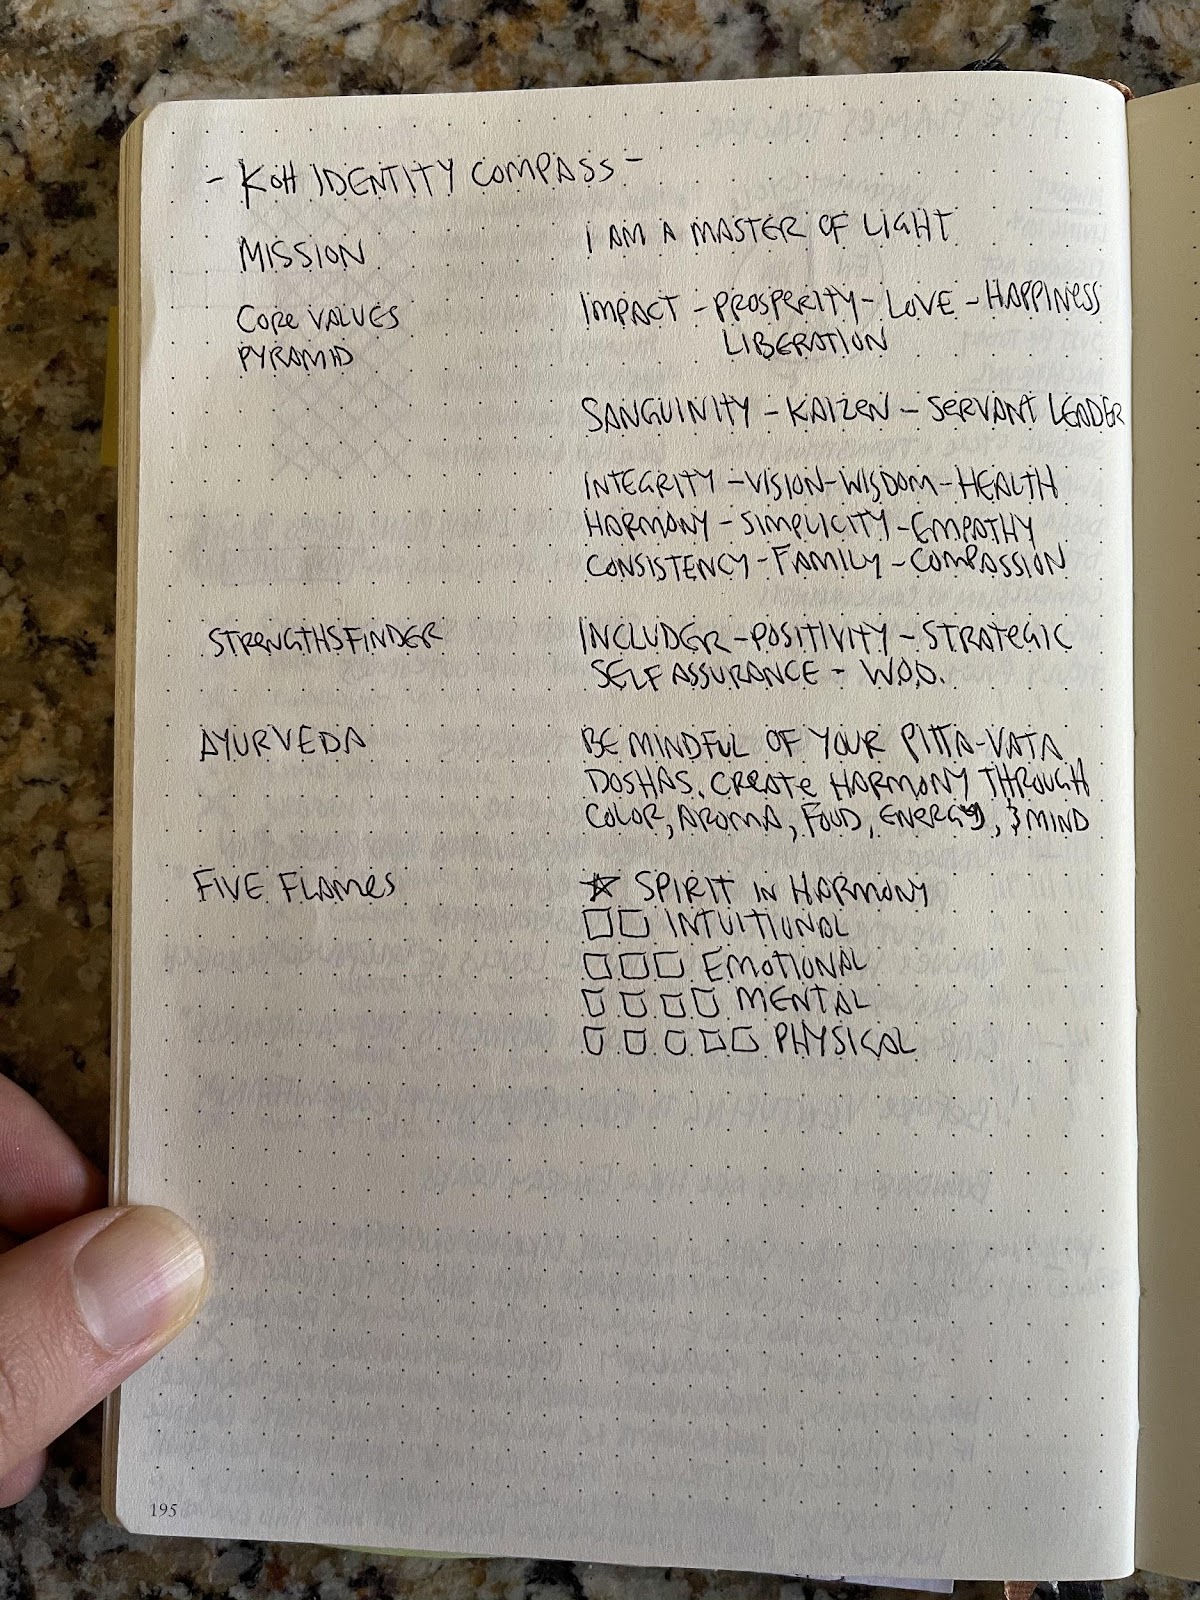 - KOH IDENTITY COMPASS -
MISSION I AM A MASTER OF LIGHT
CORE VALUES IMPACT - PROSPERITY - LOVE - HAPPINESS
PYRAMID LIBERATION
SANGUINITY - KAIZEN - SERVANT LEADER
INTEGRITY - VISION - WISDOM - HEALTH
HARMONY - SIMPLICITY - EMPATHY
CONSISTENCY - FAMILY - COMPASSION
STRENGTHSFINDER INCLUDER - POSITIVITY - STRATEGIC
SELF ASSURANCE - W.O.O.
AYURVEDA BE MINDFUL OF YOUR PITTA-VATA
DOSHAS. CREATE HARMONY THROUGH
COLOR, AROMA, FOOD, ENERGY, & MIND
FIVE FLAMES ☆ SPIRIT IN HARMONY
□□ INTUITIONAL
□□□ EMOTIONAL
□□□□ MENTAL
□□□□□ PHYSICAL
195